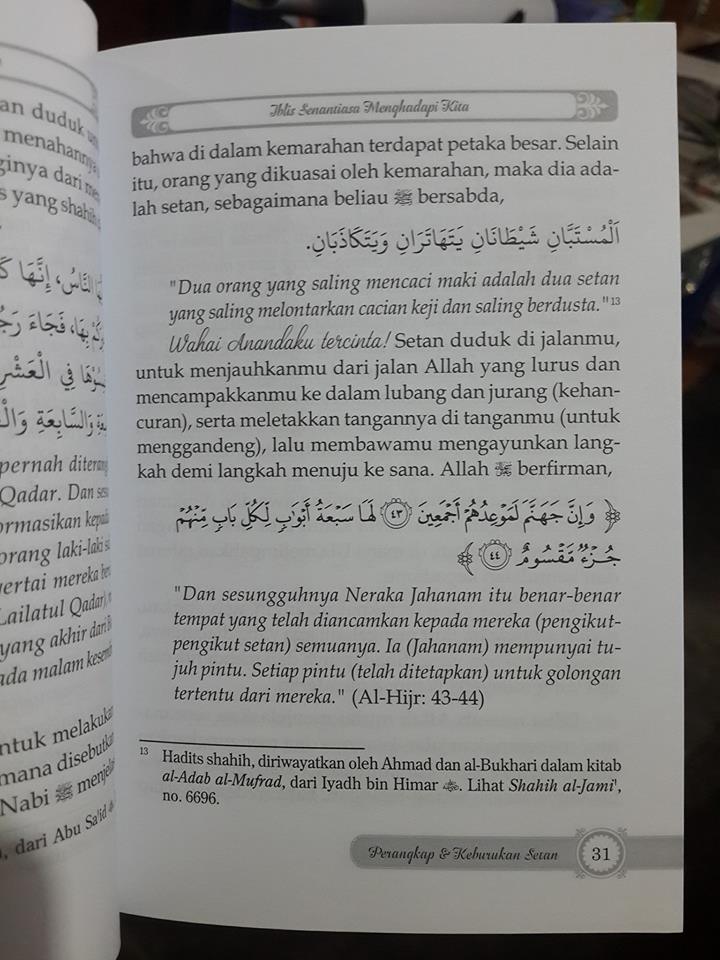 an duduk
menahannya
ginya dari
s yang shahih
النَّاسُ، إِنَّهَا
بِهَا، فَجَاءَ
فِي الْعَشْرِ
وَالسَّابِعَةِ
pernah diterang
Qadar. Dan
ormasikan kepada
orang laki-laki
vertai mereka
Lailatul Qadar),
yang akhir dari
ada malam
ntuk melakukan
mana disebutkan
Nabi ﷺ
, dari Abu Sa'id
Iblis Senantiasa Menghadapi Kita
bahwa di dalam kemarahan terdapat petaka besar. Selain
itu, orang yang dikuasai oleh kemarahan, maka dia ada-
lah setan, sebagaimana beliau ﷺ bersabda,
اَلْمُسْتَبَّانِ شَيْطَانَانِ يَتَهَاتَرَانِ وَيَتَكَاذَبَانِ.
"Dua orang yang saling mencaci maki adalah dua setan
yang saling melontarkan cacian keji dan saling berdusta."13
Wahai Anandaku tercinta! Setan duduk di jalanmu,
untuk menjauhkanmu dari jalan Allah yang lurus dan
mencampakkanmu ke dalam lubang dan jurang (kehan-
curan), serta meletakkan tangannya di tanganmu (untuk
menggandeng), lalu membawamu mengayunkan lang-
kah demi langkah menuju ke sana. Allah ﷻ berfirman,
﴿ وَإِنَّ جَهَنَّمَ لَمَوْعِدُهُمْ أَجْمَعِينَ ٤٣ لَهَا سَبْعَةُ أَبْوَٰبٍ لِّكُلِّ بَابٍ مِّنْهُمْ
جُزْءٌ مَّقْسُومٌ ٤٤ ﴾
"Dan sesungguhnya Neraka Jahanam itu benar-benar
tempat yang telah diancamkan kepada mereka (pengikut-
pengikut setan) semuanya. Ia (Jahanam) mempunyai tu-
juh pintu. Setiap pintu (telah ditetapkan) untuk golongan
tertentu dari mereka." (Al-Hijr: 43-44)
13 Hadits shahih, diriwayatkan oleh Ahmad dan al-Bukhari dalam kitab
al-Adab al-Mufrad, dari Iyadh bin Himar. Lihat Shahih al-Jami',
no. 6696.
Perangkap & Keburukan Setan 31